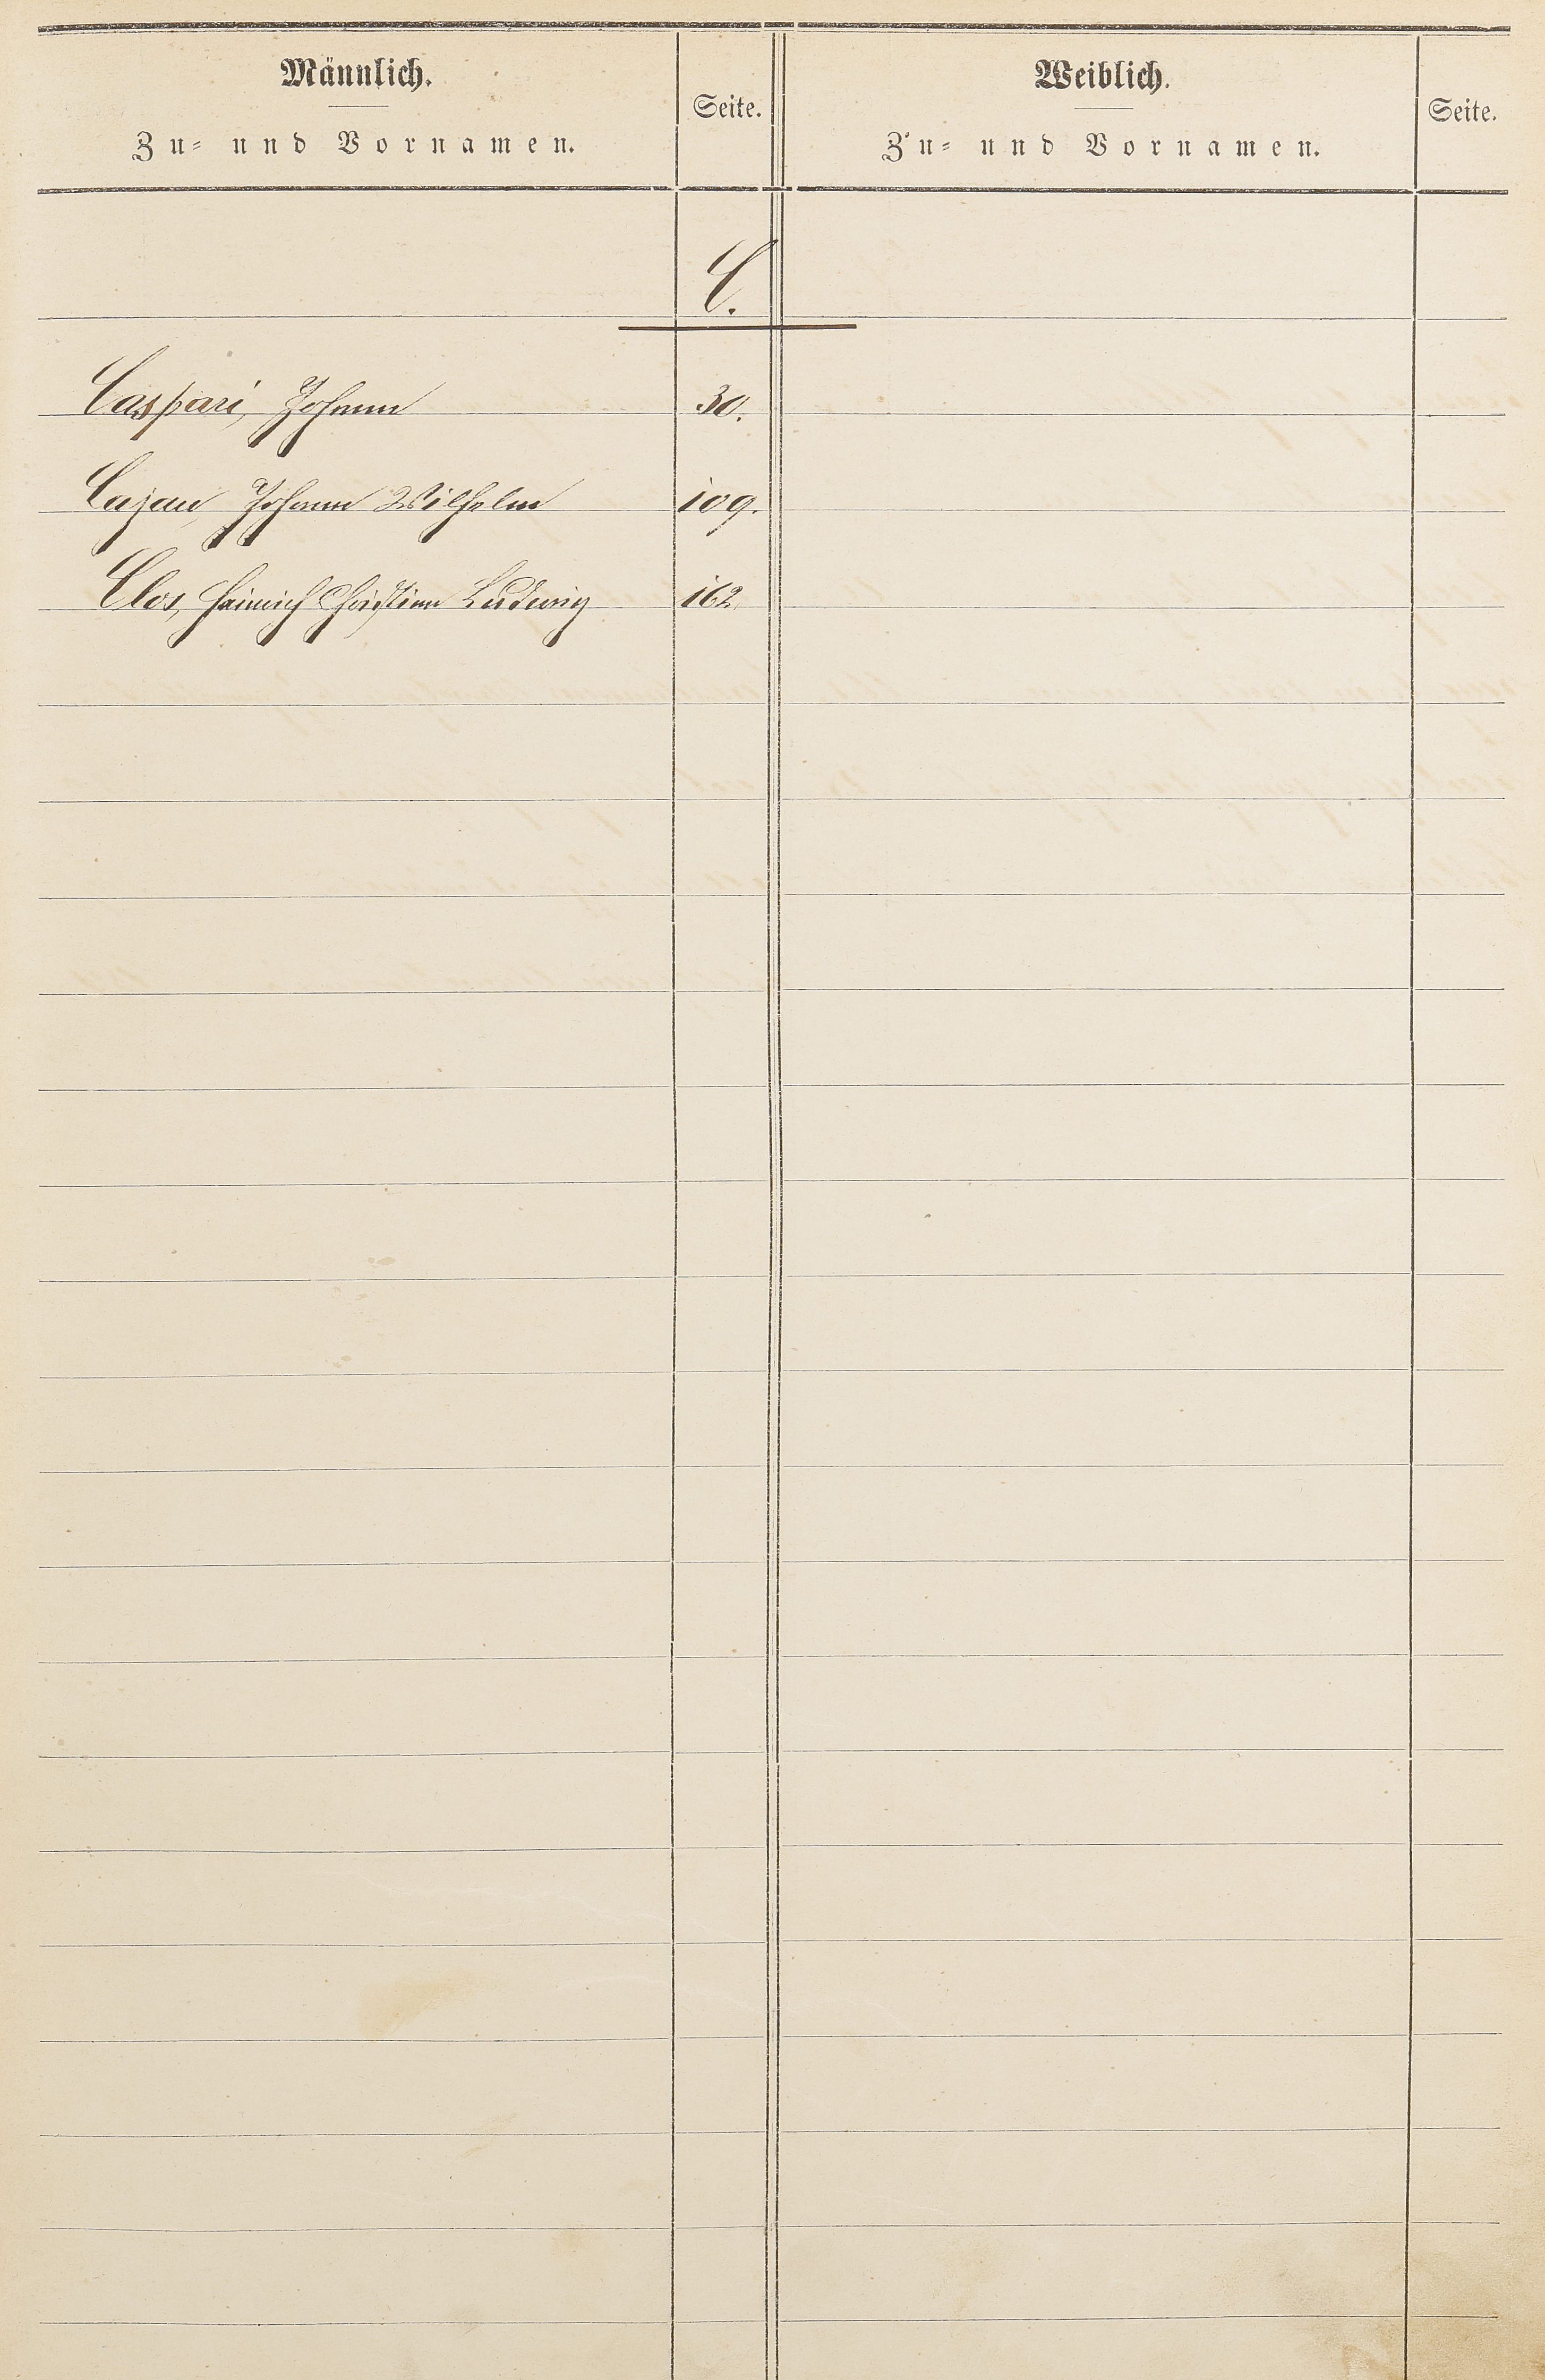 Männlich.
Zu- und Vornamen.
Seite.
Weiblich.
Zu- und Vornamen.
Seite.
C.
Caspari, Johann 30.
Cajau, Johann Wilhelm 109.
Clos, Heinrich Christian Ludwig 162.